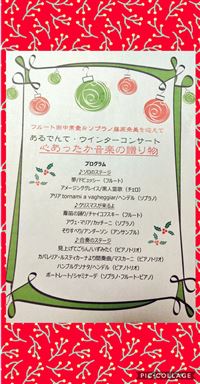 フルート田中
あるでんて・ウインターコンサート
心あったか音楽の贈り物
プログラム
♪ソロのステージ
夢/ドビュッシー（フルート）
アメージンググレイス/黒人霊歌（チェロ）
アリア tornami a vagheggiar/ヘンデル（ソプラノ）
♪クリスマスが来るよ
葦笛の踊り/チャイコフスキー（フルート）
アヴェ・マリア/カッチーニ（ソプラノ）
そりすべり/アンダーソン（アンサンブル）
♪合奏のステージ
見上げてごらん/いずみたく（ピアノトリオ）
カバレリア・ルスティカーナより間奏曲/マスカーニ（ピアノトリオ）
ハンブルグソナタ/ヘンデル（ピアノトリオ）
ポートレート/シャミナーデ（ソプラノ・フルート・ピアノ）
PIC COLLAGE